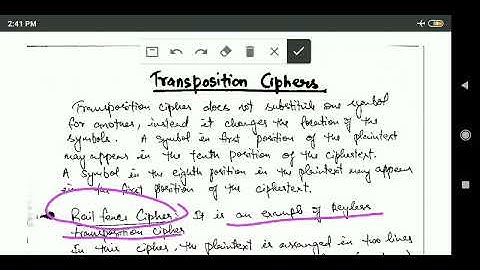 2:41 PM
Transposition Ciphers
Transposition cipher does not substitute one symbol
for another, instead it changes the location of the
symbols. A symbol in first position of the plaintext
may appears in the tenth position of the ciphertext.
A symbol in the eighth position in the plaintext may appear
in the first position of the ciphertext.
Rail fence Cipher: It is an example of keyless
transposition cipher
In this cipher, the plaintext is arranged in two lines